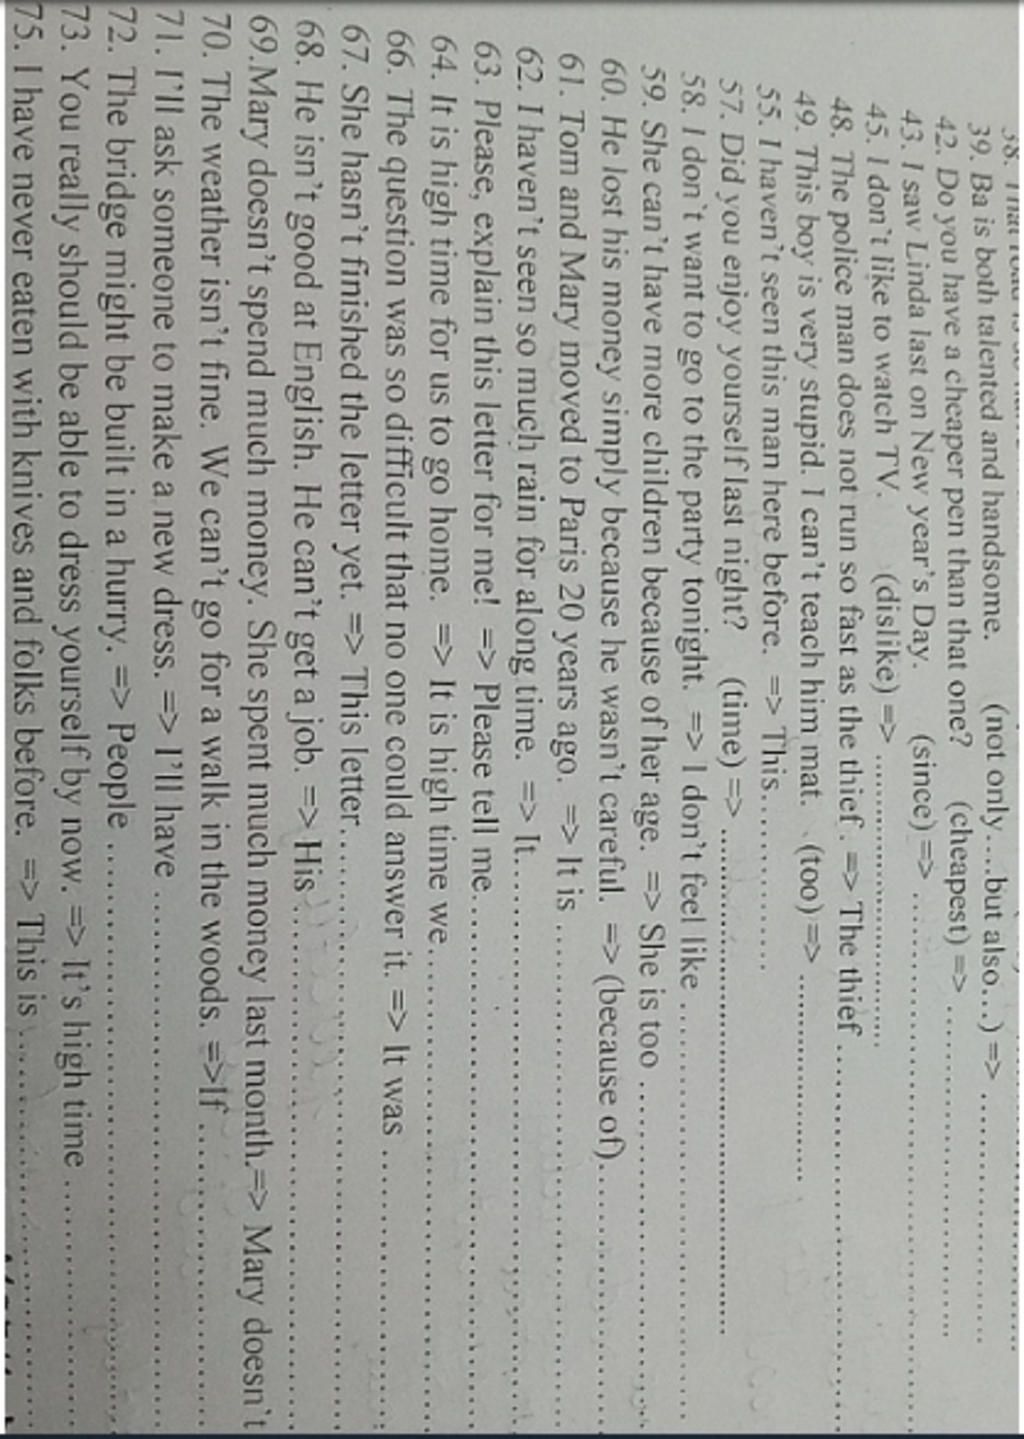 39. Ba is both talented and handsome. (not only....but also...) => ................
42. Do you have a cheaper pen than that one? (cheapest) => ................
43. I saw Linda last on New year's Day. (since) => ................
45. I don't like to watch TV. (dislike) => ................
48. The police man does not run so fast as the thief. => The thief ................
49. This boy is very stupid. I can't teach him mat. (too) => ................
55. I haven't seen this man here before. => This................
57. Did you enjoy yourself last night? (time) => ................
58. I don't want to go to the party tonight. => I don't feel like ................
59. She can't have more children because of her age. => She is too ................
60. He lost his money simply because he wasn't careful. => (because of)................
61. Tom and Mary moved to Paris 20 years ago. => It is ................
62. I haven't seen so much rain for along time. => It................
63. Please, explain this letter for me! => Please tell me................
64. It is high time for us to go home. => It is high time we................
66. The question was so difficult that no one could answer it. => It was ................
67. She hasn't finished the letter yet. => This letter................
68. He isn't good at English. He can't get a job. => His................
69.Mary doesn't spend much money. She spent much money last month.=> Mary doesn't
70. The weather isn't fine. We can't go for a walk in the woods. =>If ................
71. I'll ask someone to make a new dress. => I'll have ................
72. The bridge might be built in a hurry. => People ................
73. You really should be able to dress yourself by now. => It's high time ................
75. I have never eaten with knives and folks before. => This is ................